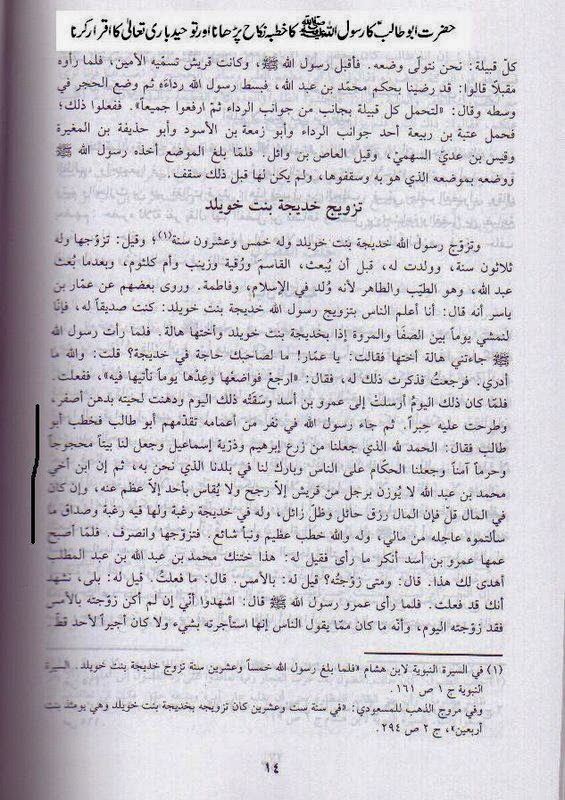 حضرت ابو طالبؑ کا رسول اللہ ﷺ کا خطبہ نکاح پڑھانا اور توحید باری تعالیٰ کا اقرار کرنا
كلّ قبيلة: نحن نتولّى وضعه. فأقبل رسول الله ﷺ، وكانت قريش تسمّيه الأمين، فلما رأوه
مقبلاً قالوا: قد رضينا بحكم محمّد بن عبد الله، فبسط رسول الله رداءَه ثم وضع الحجر في
وسطه وقال: «لتحمل كل قبيلة بجانب من جوانب الرداء ثمّ ارفعوا جميعاً». ففعلوا ذلك؛
فحمل عتبة بن ربيعة أحد جوانب الرداء وأبو زمعة بن الأسود وأبو حذيفة بن المغيرة
وقيس بن عديّ السهميّ، وقيل العاص بن وائل. فلمّا بلغ الموضع أخذه رسول الله ﷺ
ووضعه بموضعه الذي هو به وسقفوها، ولم يكن لها قبل ذلك سقف.
تزويج خديجة بنت خويلد
وتزوّج رسول الله خديجة بنت خويلد وله خمس وعشرون سنة(١)؛ وقيل: تزوّجها وله
ثلاثون سنة، وولدت له، قبل أن يُبعث، القاسمَ ورُقية وزينب وأم كلثوم، وبعدما بُعث
عبد الله، وهو الطيّب والطاهر لأنه وُلد في الإسلام، وفاطمة. وروى بعضهم عن عمّار بن
ياسر أنه قال: أنا أعلم الناس بتزويج رسول الله خديجة بنت خويلد: كنت صديقاً له، فإنّا
لنمشي يوماً بين الصفَا والمروة إذا بخديجة بنت خويلد وأختها هالة. فلما رأت رسول الله
ﷺ جاءتني هالة أختها فقالت: يا عمّار! ما لصاحبك حاجة في خديجة؟ قلت: والله ما
أدري. فرجعتُ فذكرت ذلك له، فقال: «ارجعْ فواضعْها وعِدْها يوماً نأتيها فيه»، ففعلت.
فلمّا كان ذلك اليومُ أرسلتْ إلى عمرو بن أسد وسَقَتْه ذلك اليوم ودهنت لحيته بدهن أصفر،
وطرحت عليه حِبراً. ثم جاء رسول الله في نفر من أعمامه تقدّمهم أبو طالب فخطب أبو
طالب فقال: الحمد لله الذي جعلنا من زرع إبرهيم وذرّية إسماعيل وجعل لنا بيتاً محجوجاً
وحرماً آمناً وجعلنا الحكّام على الناس وبارك لنا في بلدنا الذي نحن به، ثم إن ابن أخي
محمد بن عبد الله لا يُوزن برجل من قريش إلاّ رجح ولا يُقاس بأحد إلاّ عظم عنه، وإن كان
في المال قلّ فإن المال رزق حائل وظلّ زائل، وله في خديجة رغبة ولها فيه رغبة وصداق ما
سألتموه عاجله من مالي، وله والله خطب عظيم ونبأ شائع. فتزوّجها وانصرف. فلمّا أصبح
عمها عمرو بن أسد أنكر ما رأى فقيل له: هذا ختنك محمد بن عبد الله بن عبد المطلب
أهدى لك هذا. قال: ومتى زوّجتُه؟ قيل له: بالأمس. قال: ما فعلتُ. قيل له: بلى، نشهد
أنك قد فعلت. فلما رأى عمرو رسول الله ﷺ قال: اشهدوا أنّي إن لم أكن زوّجته بالأمس
فقد زوّجته اليوم، وأنّه ما كان ممّا يقول الناس إنها استأجرته بشيء ولا كان أجيراً لأحد قطّ.
(١) في السيرة النبوية لابن هشام «فلما بلغ رسول الله خمساً وعشرين سنة تزوج خديجة بنت خويلد. السيرة
النبوية ج ١ ص ١٦١.
وفي مروج الذهب للمسعودي: «في سنة ست وعشرين كان تزويجه بخديجة بنت خويلد وهي يومئذ بنت
أربعين»، ج ٢ ص ٢٩٤.
١٤